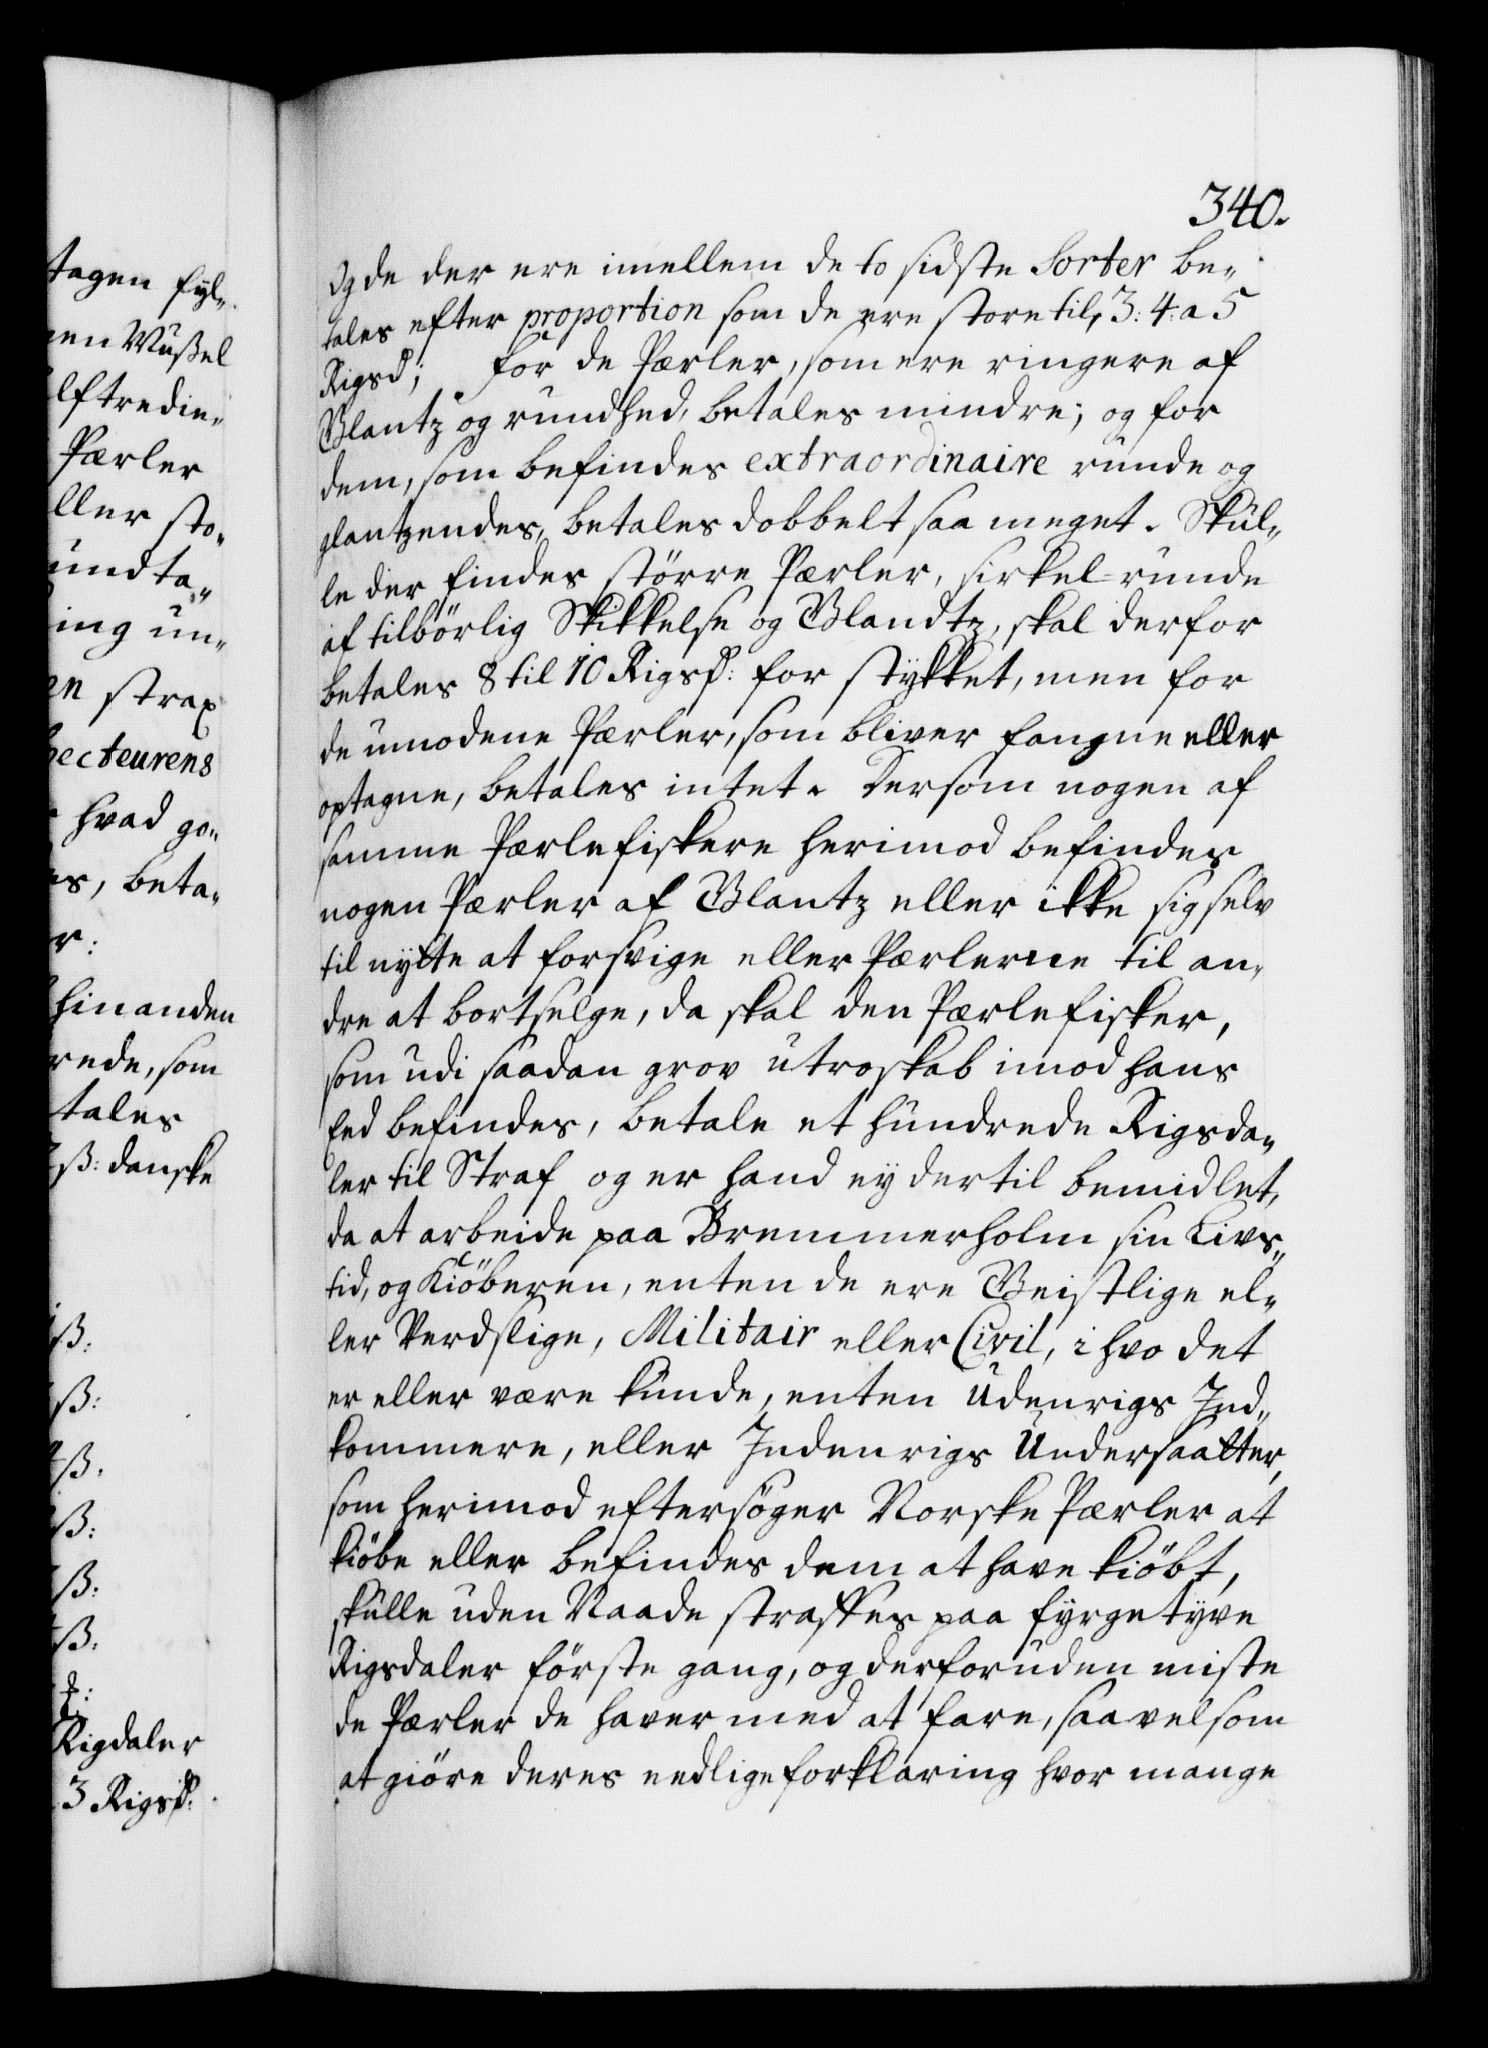 tagen fyl-
nen Mußel
lftredie-
Pærler
ller sto-
undta-
ing un-
en strax
pecteurens
hvad go-
es, beta-
r:
hinanden
rede, som
tales
ß: danske
ß:
ß:
ß.
ß:
ß:
ß.
Rigdaler
3 Rigsd:
340.
Og de der ere imellem de to sidste Sorter be-
tales efter proportion som de ere store til, 3: 4: a 5
Rigsd; for de Pærler, som ere ringere af
Glantz og rundhed, betales mindre; og for
dem, som befindes extraordinaire runde og
glantzendes, betales dobbelt saa meget. Skul-
le der findes större Pærler, sirkel-runde
af tilbörlig Skikkelse og Glandtz, skal derfor
betales 8 til 10 Rigsd: for stykket, men for
de umodene Pærler, som bliver fangne eller
optagne, betales intet. Dersom nogen af
samme Pærlefiskere herimod befindes
nogen Pærler af Glantz eller ikke sig selv
til nytte at forsvige eller Pærlerne til an-
dre at bortselge, da skal den Pærlefisker,
som udi saadan grov utroskab imod hans
Eed befindes, betale et hundrede Rigsda-
ler til Straf og er hand ey dertil bemidlet,
da at arbeide paa Bremmerholm sin Livs-
tid, og Kiöberen, enten de ere Geistlige el-
ler Verdslige, Militair eller Civil, i hvo det
er eller være kunde, enten Udenrigs Ind-
kommere, eller Indenrigs Undersaatter,
som herimod eftersöger Norske Pærler at
kiöbe eller befindes dem at have kiöbt,
skulle uden Naade straffes paa fyrgetyve
Rigsdaler förste gang, og derforuden miste
de Pærler de haver med at fare, saavelsom
at giöre deres eedlige forklaring hvor mange